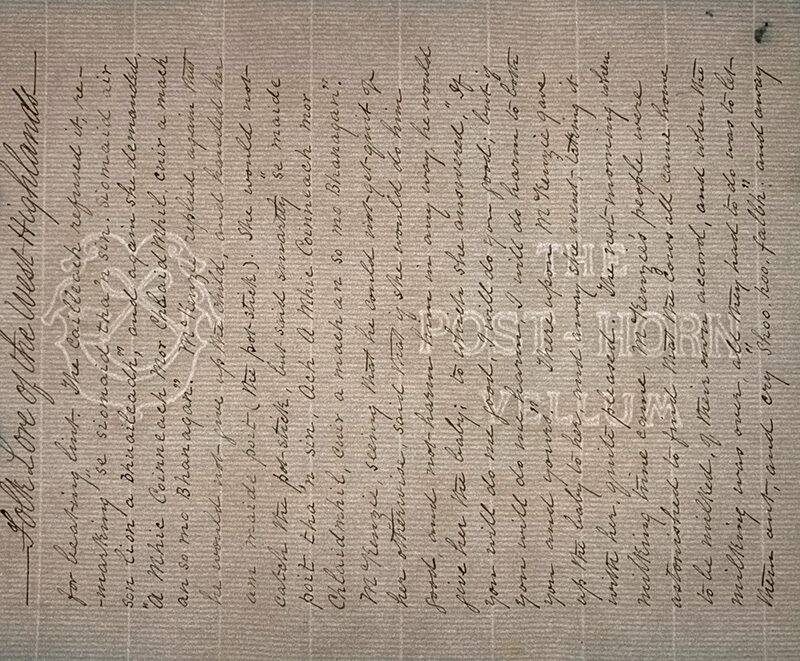 Folk Lore of the West Highlands
for beating lint. The Cailleach refused it, re-
-marking "se siomaid tha'n sin. Siomaid air
son lion a bhuaileadh," and again she demanded,
"A Mhic Coinneach Mor Chlaidmhil, cuir a mach
an so mo Bhanagan". McKenzie replied again that
he would not give up the child, and handed her
am maide poit (the pot stick). She would not
catch the pot-stick, but said smartly "Se maide
poit tha'n sin. Ach A Mhic Coinneach mor
Chlaidmhil, cuir a mach an so mo Bhanagan".
McKenzie seeing that he could not get quit of
her otherwise, said that if she would do him
good, and not harm him in any way, he would
give her the baby; to which she answered, "If
you will do me good, I will do you good, but if
you will do me harm, I will do harm to both
you and yours". There upon McKenzie gave
up the baby to her, and away she went taking it
with her, quite pleased. The next morning when
milking time came, McKenzie's people were
astonished to find that the cows all came home
to be milked, of their own accord, and when the
milking was over, all they had to do was to let
them out, and cry "Shoo, hoo, falbh": and away
THE
POST HORN
VELLUM